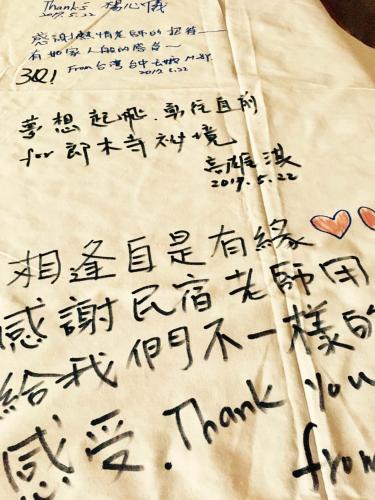 Thanks 楊心儀
2017.5.22
感謝熱情老師的招待
有如家人般的感受~
3Q! From台灣台中
2017.5.22
夢想起飛.勇往直前
for 郎木寺祕境
高雄 淇
2017.5.22
相逢自是有緣
感謝民宿老師用
給我們不一樣的
感受. Thank you
from